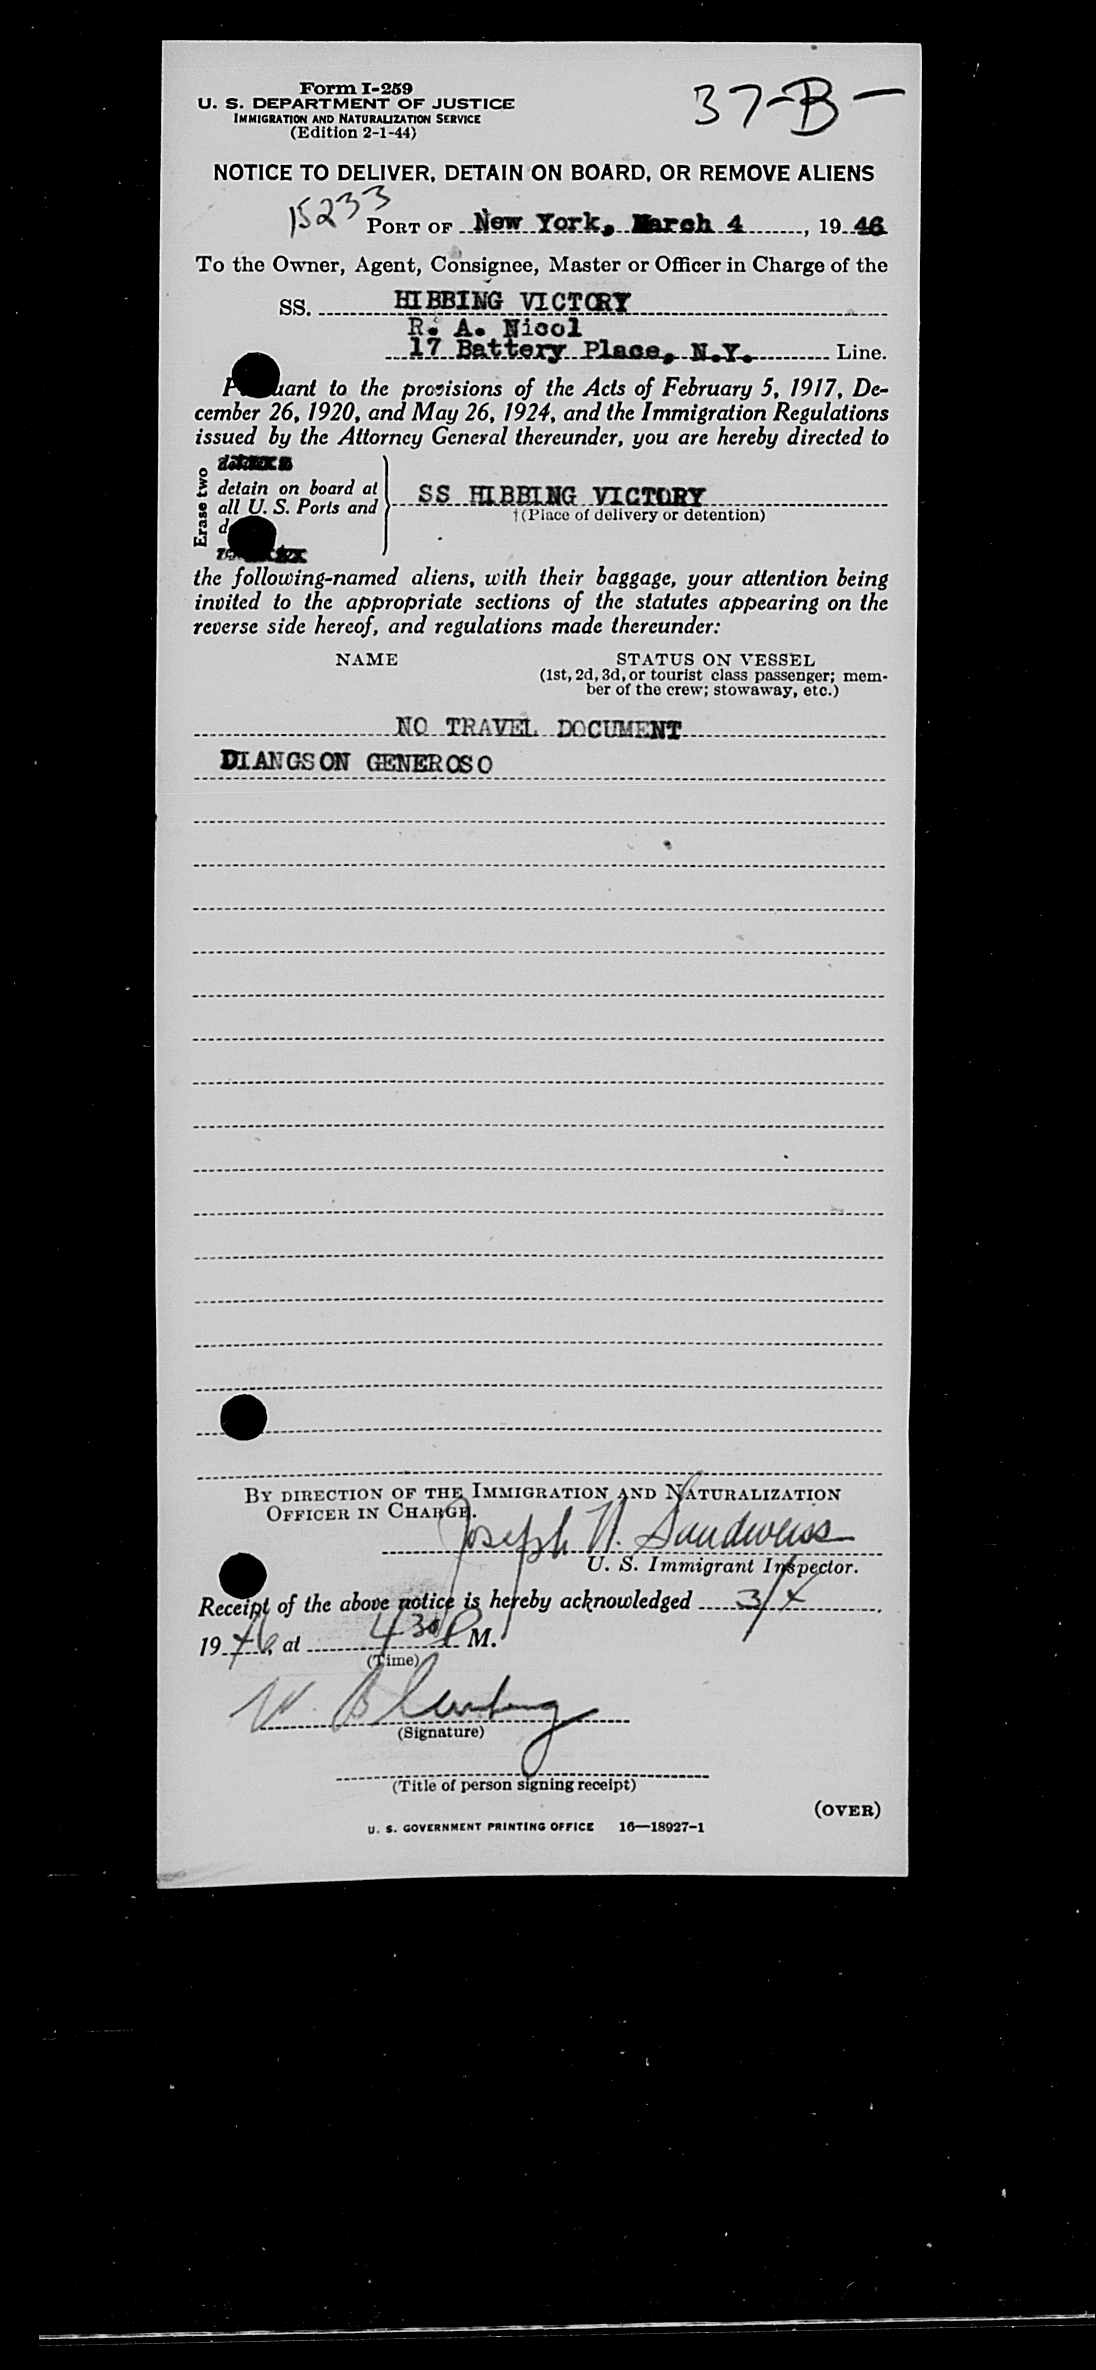 Form I-259
U. S. DEPARTMENT OF JUSTICE
IMMIGRATION AND NATURALIZATION SERVICE
(Edition 2-1-44)
37-B-
NOTICE TO DELIVER, DETAIN ON BOARD, OR REMOVE ALIENS
15233
PORT OF New York, March 4, 1946
To the Owner, Agent, Consignee, Master or Officer in Charge of the
SS. HIBBING VICTORY
R. A. Nicol
17 Battery Place, N.Y. Line.
uant to the provisions of the Acts of February 5, 1917, De-
cember 26, 1920, and May 26, 1924, and the Immigration Regulations
issued by the Attorney General thereunder, you are hereby directed to
Erase two
detain on board at
all U. S. Ports and
SS HIBBING VICTORY
†(Place of delivery or detention)
the following-named aliens, with their baggage, your attention being
invited to the appropriate sections of the statutes appearing on the
reverse side hereof, and regulations made thereunder:
NAME
STATUS ON VESSEL
(1st, 2d, 3d, or tourist class passenger; mem-
ber of the crew; stowaway, etc.)
NO TRAVEL DOCUMENT
DIANGSON GENEROSO
BY DIRECTION OF THE IMMIGRATION AND NATURALIZATION
OFFICER IN CHARGE.
Joseph N. Sandweiss
U. S. Immigrant Inspector.
Receipt of the above notice is hereby acknowledged 3/4
1946, at 430 P M.
(Time)
W.
(Signature)
(Title of person signing receipt)
(OVER)
U. S. GOVERNMENT PRINTING OFFICE 16—18927-1